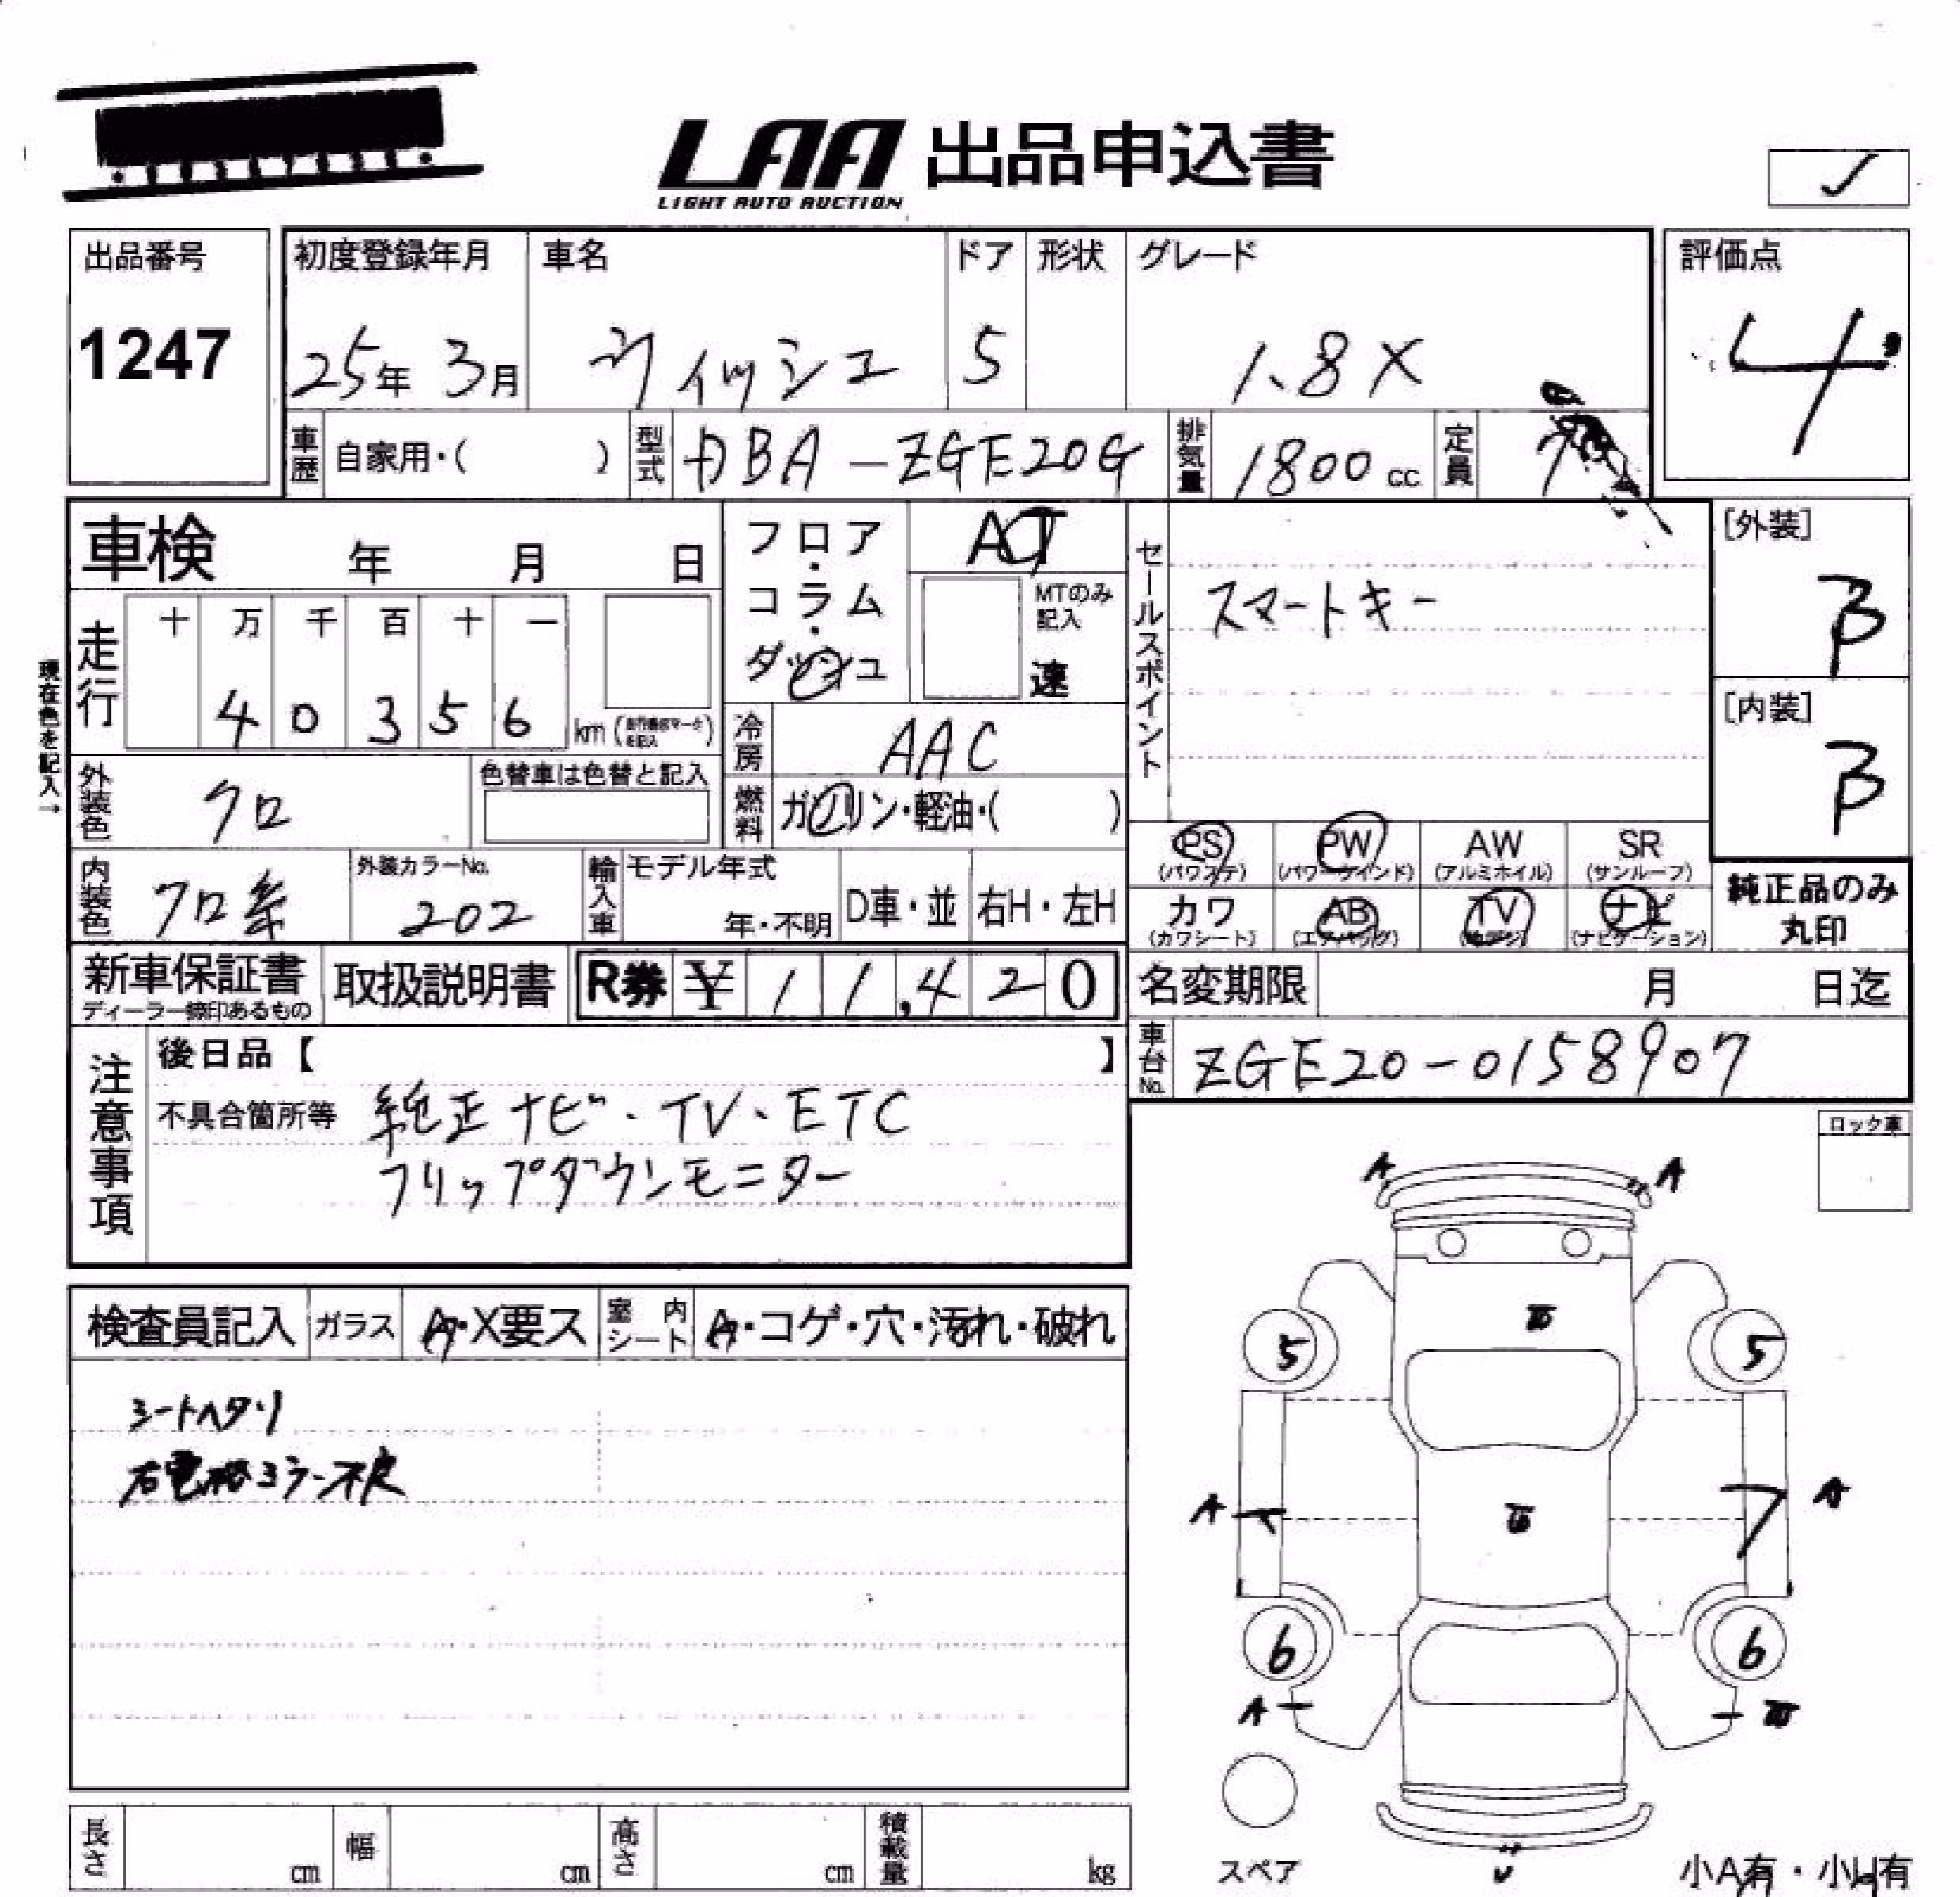 LAA 出品申込書
LIGHT AUTO AUCTION
出品番号
1247
初度登録年月
25年 3月
車名
ウィッシュ
ドア
5
形状
グレード
1.8X
評価点
4
車歴
自家用・( )
型式
DBA-ZGE20G
排気量
1800cc
定員
7
車検 年 月 日
フロア・コラム・ダッシュ
AT
MTのみ記入
速
セールスポイント
スマートキー
[外装]
B
[内装]
B
現在色を記入→
走行
十 万 千 百 十 一
4 0 3 5 6 km
冷房
AAC
外装色
クロ
色替車は色替と記入
燃料
ガソリン・軽油・( )
PS
(パワステ)
PW
(パワーウインド)
AW
(アルミホイル)
SR
(サンルーフ)
内装色
クロ系
外装カラーNo.
202
輸入車
モデル年式
年・不明
D車・並
右H・左H
カワ
(カワシート)
AB
(エアバッグ)
TV
ナビ
(ナビゲーション)
純正品のみ
丸印
新車保証書
取扱説明書
R券 ¥ 11,420
名変期限 月 日迄
ディーラー捺印あるもの
車台No.
ZGE20-0158907
注意事項
後日品【 】
不具合箇所等
純正ナビ・TV、ETC
フリップダウンモニター
ロック車
検査員記入
ガラス
A・X要ス
室内シート
A・コゲ・穴・汚れ・破れ
シートヘタリ
A
A
5
5
A
A
6
6
A
長さ cm
幅 cm
高さ cm
積載量 kg
スペア
小A有・小U有